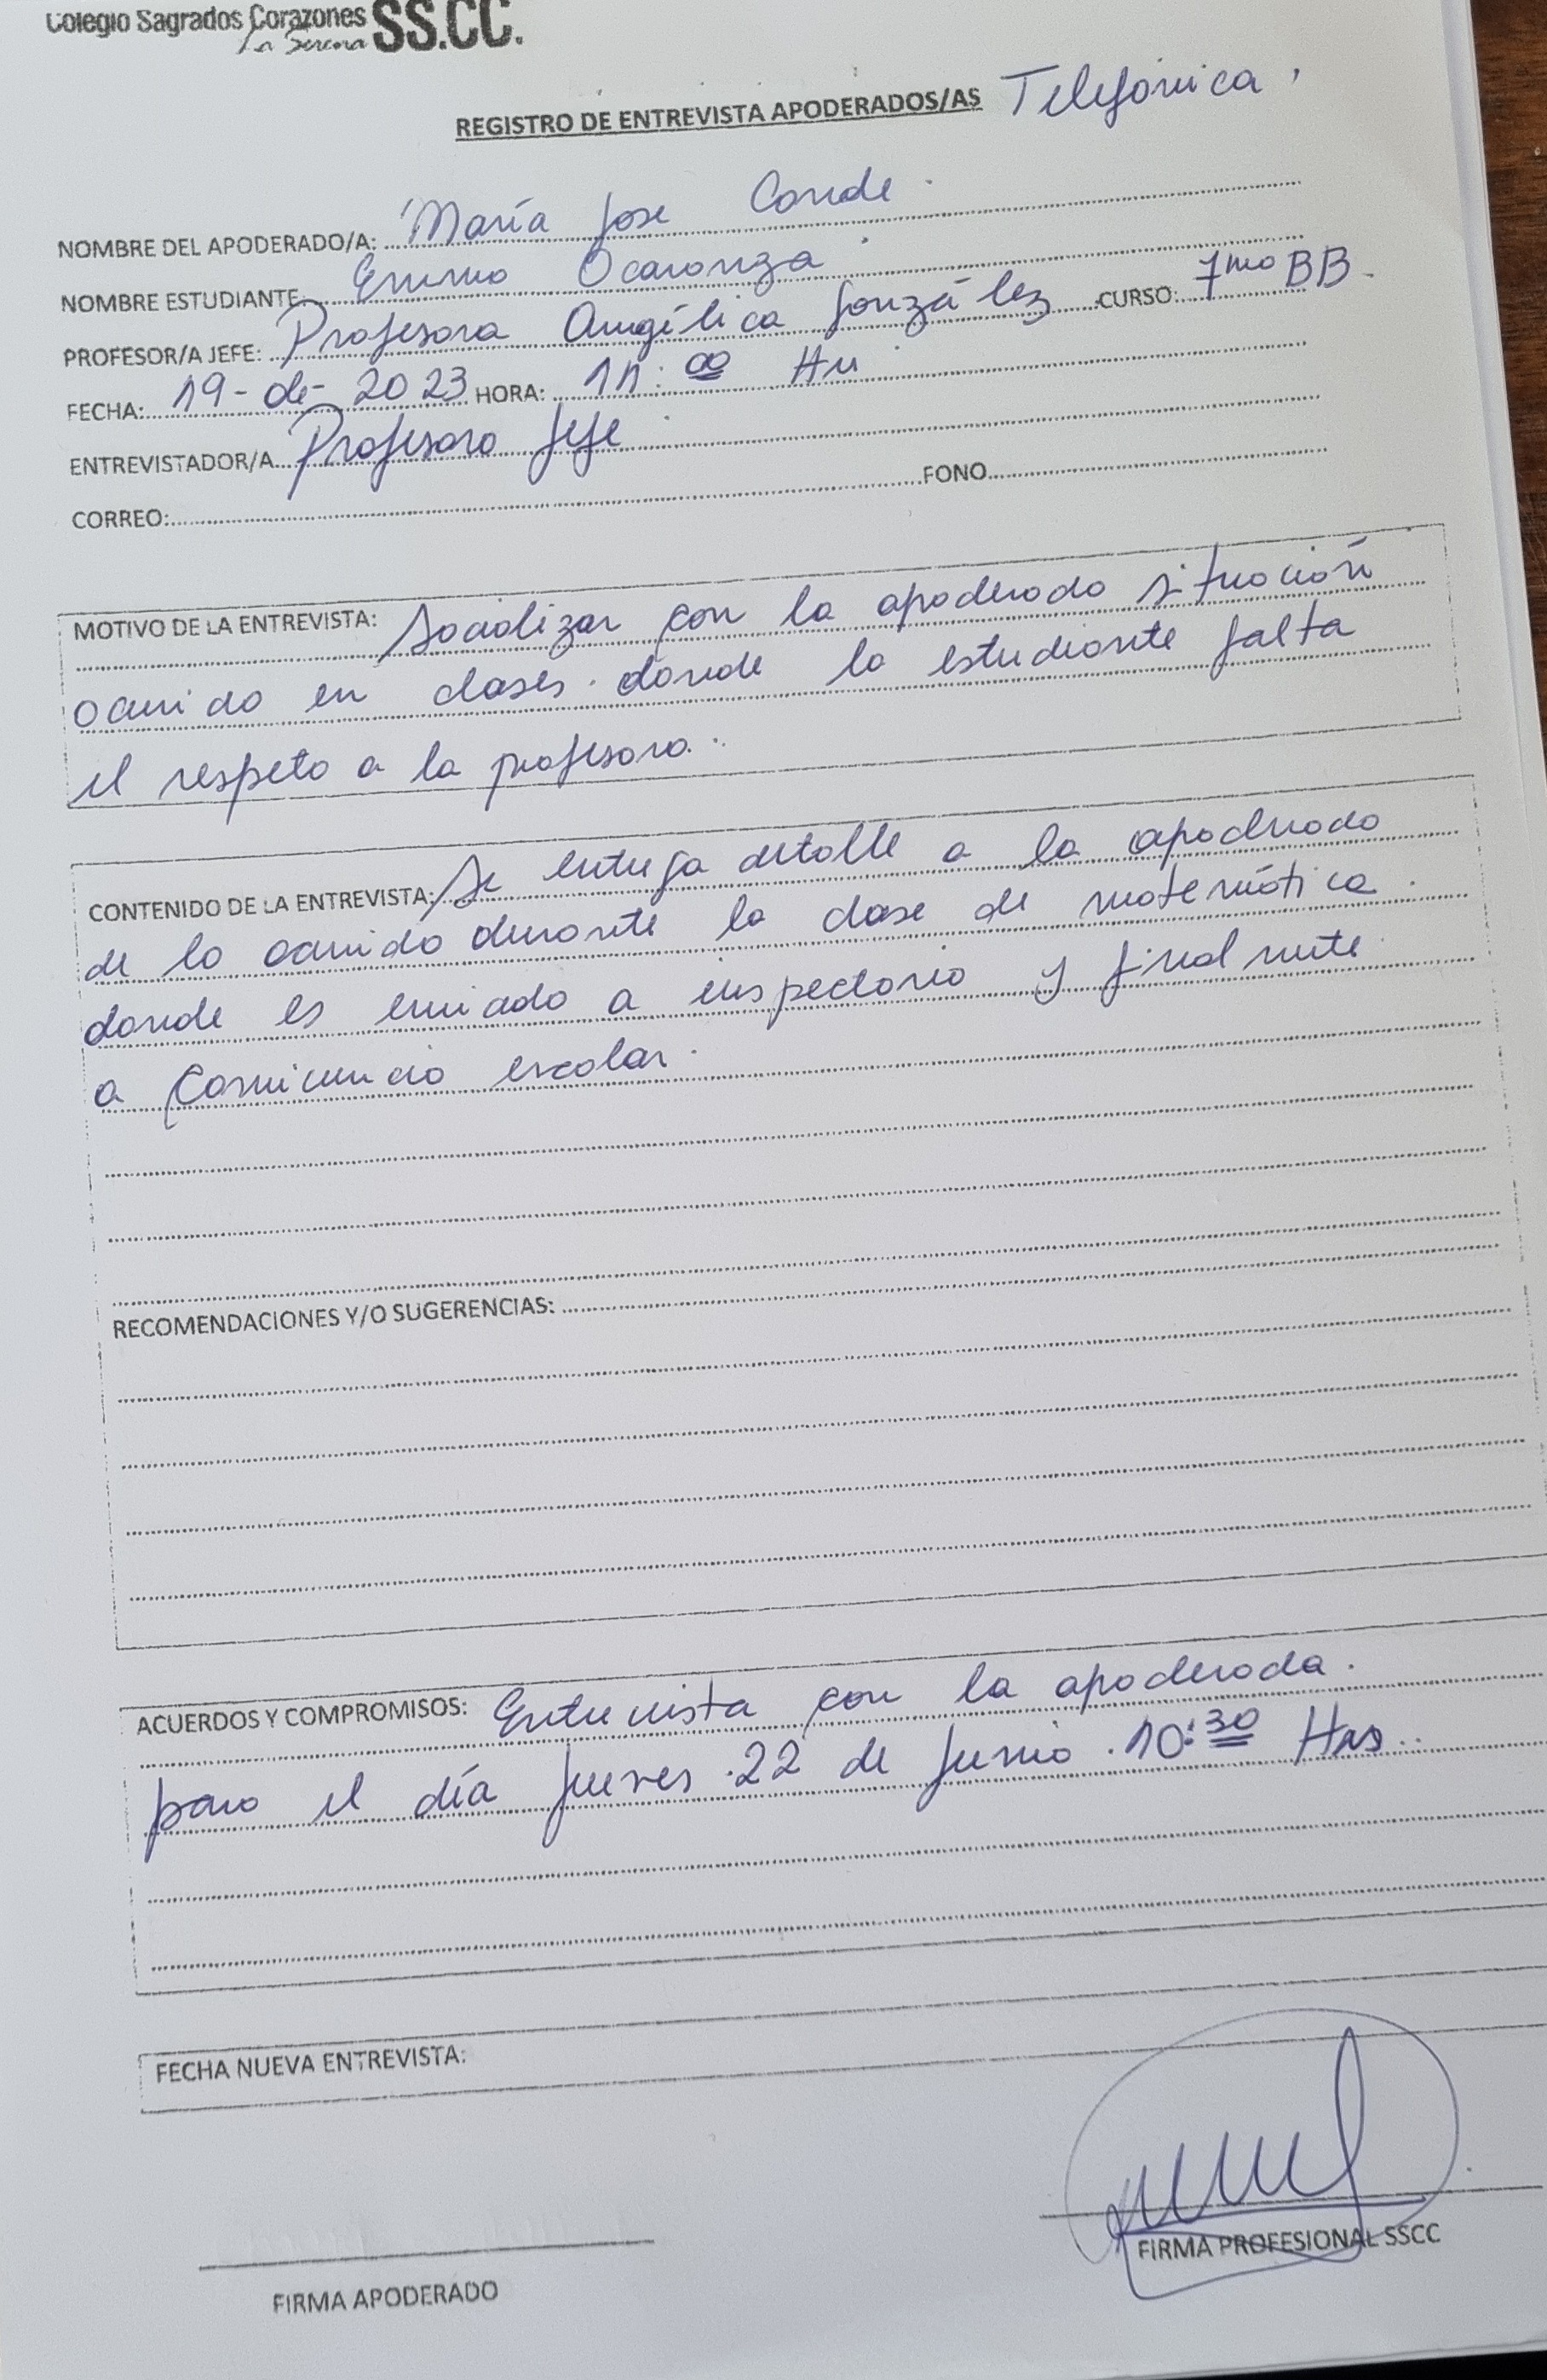 Colegio Sagrados Corazones SS.CC.
La Serena
REGISTRO DE ENTREVISTA APODERADOS/AS Telefónica.
NOMBRE DEL APODERADO/A: María Jose Conde.
NOMBRE ESTUDIANTE Emma Ocaranza
PROFESOR/A JEFE: Profesora Angélica González CURSO: 7mo BB.
FECHA: 19-de-2023 HORA: 11:00 Hrs
ENTREVISTADOR/A Profesora Jefe
CORREO: FONO
MOTIVO DE LA ENTREVISTA: Socializar con la apoderada situación
ocurrida en clases. donde la estudiante falta
el respeto a la profesora.
CONTENIDO DE LA ENTREVISTA: Se entrega detalle a la apoderada
de lo ocurrido durante la clase de matemática.
donde es enviada a inspectoria y finalmente
a Convivencia escolar.
RECOMENDACIONES Y/O SUGERENCIAS:
ACUERDOS Y COMPROMISOS: Entrevista con la apoderada.
para el día Jueves .22 de Junio .10:30 Hrs..
FECHA NUEVA ENTREVISTA:
FIRMA PROFESIONAL SSCC
FIRMA APODERADO